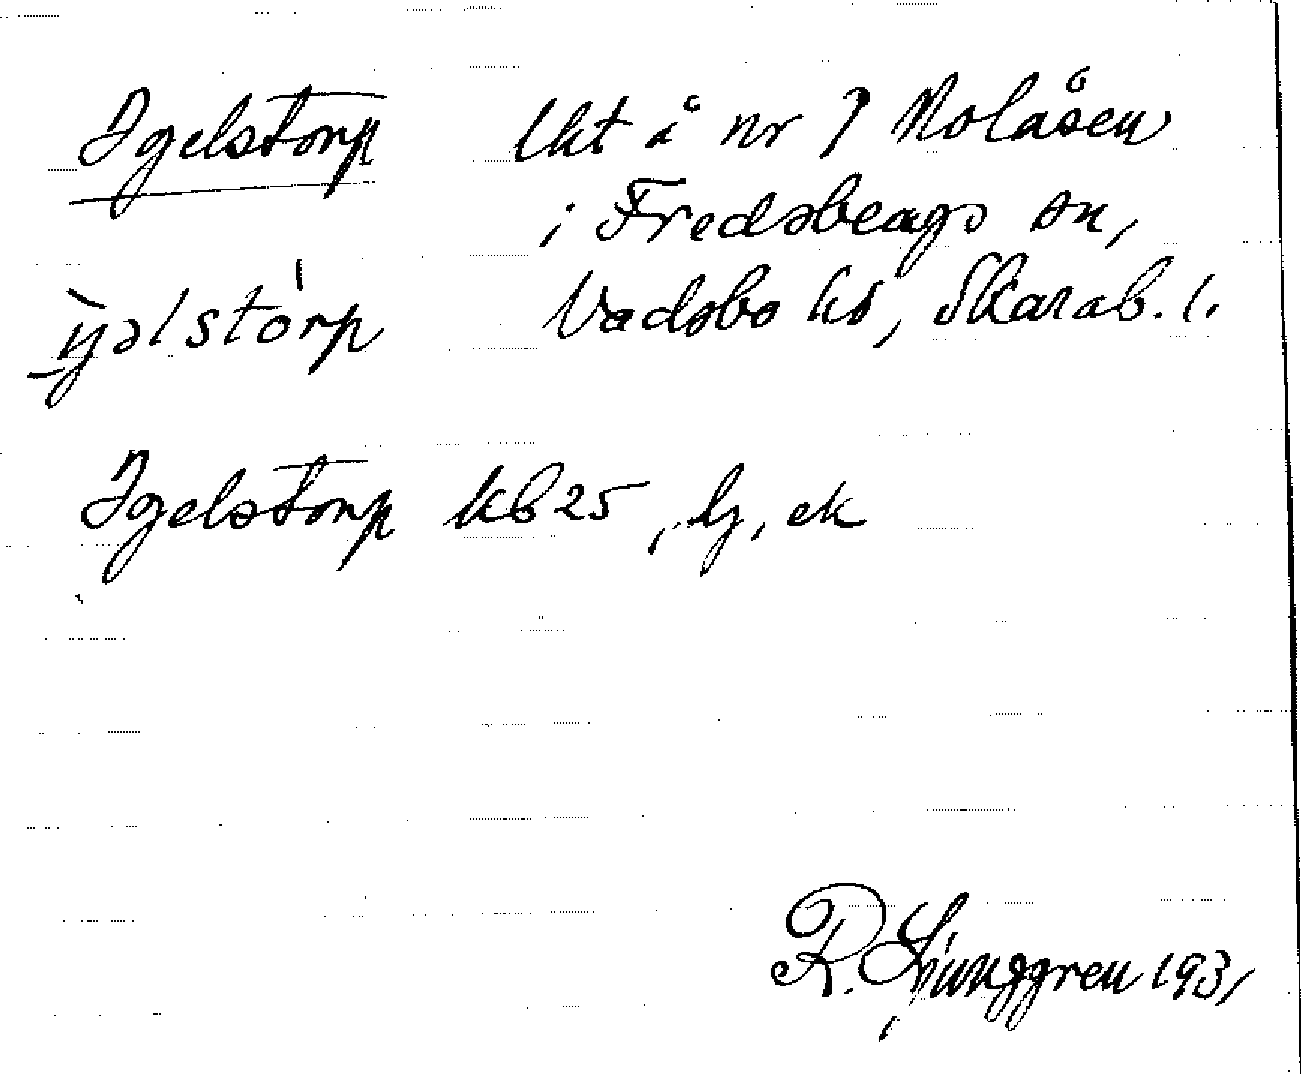 Igelstorp lht å nr 7 Nolåsen
i Fredsbergs sn,
Vadsbo hd, Skarab. l.
ỳgəlstórp
Igelstorp kb 25, lj, ek
R. Ljunggren 1931